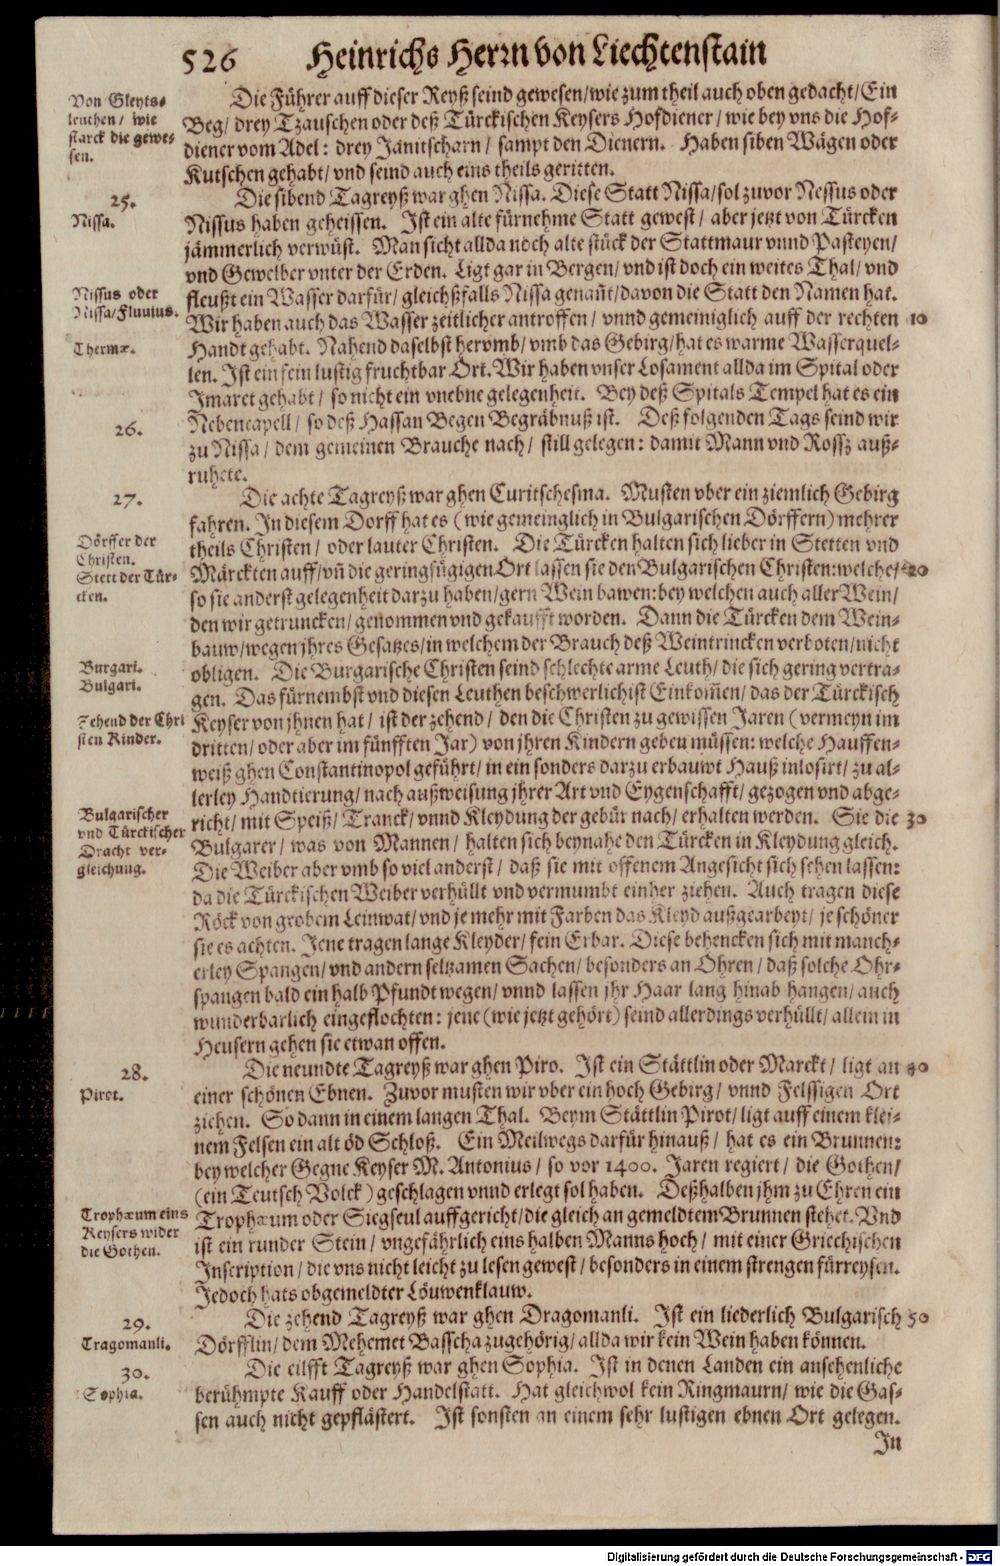 526 Heinrichs Herrn von Liechtenstain
Von Gleyts-
leuthen / wie
starck die gewe-
sen.
Die Führer auff dieser Reyß seind gewesen / wie zum theil auch oben gedacht / Ein
Beg / drey Tzauschen oder deß Türckischen Keysers Hofdiener / wie bey vns die Hof-
diener vom Adel: drey Janitscharn / sampt den Dienern. Haben siben Wägen oder
Kutschen gehabt / vnd seind auch eins theils geritten.
25.
Nissa.
Die sibend Tagreyß war ghen Nissa. Diese Statt Nissa / sol zuvor Nessus oder
Nissus haben geheissen. Ist ein alte fürnehme Statt gewest / aber jetzt von Türcken
jämmerlich verwüst. Man sicht allda noch alte stück der Stattmaur vnnd Pasteyen /
vnd Gewelber vnter der Erden. Ligt gar in Bergen / vnd ist doch ein weites Thal / vnd
Nissus oder
Nissa / Fluuius.
fleußt ein Wasser darfür / gleichßfalls Nissa genañt / davon die Statt den Namen hat.
Wir haben auch das Wasser zeitlicher antroffen / vnnd gemeiniglich auff der rechten 10
Thermæ.
Handt gehabt. Nahend daselbst hervmb / vmb das Gebirg / hat es warme Wasserquel-
len. Ist ein fein lustig fruchtbar Ort. Wir haben vnser Losament allda im Spital oder
Imaret gehabt / so nicht ein vnebne gelegenheit. Bey deß Spitals Tempel hat es ein
Nebencapell / so deß Hassan Begen Begräbnuß ist. Deß folgenden Tags seind wir
26.
zu Nissa / dem gemeinen Brauche nach / still gelegen: damit Mann vnd Rossz auß-
ruhete.
27.
Die achte Tagreyß war ghen Curitschesma. Musten vber ein ziemlich Gebirg
fahren. In diesem Dorff hat es (wie gemeinglich in Bulgarischen Dörffern) mehrer
Dörffer der
Christen.
Stett der Tür-
cken.
theils Christen / oder lauter Christen. Die Türcken halten sich lieber in Stetten vnd
Märckten auff / vñ die geringfügigen Ort lassen sie den Bulgarischen Christen: welche / 20
so sie anderst gelegenheit darzu haben / gern Wein bawen: bey welchen auch aller Wein /
den wir getruncken / genommen vnd gekaufft worden. Dann die Türcken dem Wein-
bauw / wegen jhres Gesatzes / in welchem der Brauch deß Weintrincken verboten / nicht
Burgari.
Bulgari.
obligen. Die Burgarische Christen seind schlechte arme Leuth / die sich gering vertra-
gen. Das fürnembst vnd diesen Leuthen beschwerlichist Einkom̃en / das der Türckisch
Zehend der Chri
sten Kinder.
Keyser von jhnen hat / ist der zehend / den die Christen zu gewissen Jaren (vermeyn im
dritten / oder aber im fünfften Jar) von jhren Kindern geben müssen: welche Hauffen-
weiß ghen Constantinopol geführt / in ein sonders darzu erbauwt Hauß inlosirt / zu al-
lerley Handtierung / nach außweisung jhrer Art vnd Eygenschafft / gezogen vnd abge-
Bulgarischer
vnd Türckischer
Tracht ver-
gleichung.
richt / mit Speiß / Tranck / vnnd Kleydung der gebür nach / erhalten werden. Sie die 30
Bulgarer / was von Mannen / halten sich beynahe den Türcken in Kleydung gleich.
Die Weiber aber vmb so viel anderst / daß sie mit offenem Angesicht sich sehen lassen:
da die Türckischen Weiber verhüllt vnd vermumbt einher ziehen. Auch tragen diese
Röck von grobem Leinwat / vnd je mehr mit Farben das Kleyd außgearbeyt / je schöner
sie es achten. Jene tragen lange Kleyder / fein Erbar. Diese behencken sich mit manch-
erley Spangen / vnd andern seltzamen Sachen / besonders an Ohren / daß solche Ohr-
spangen bald ein halb Pfundt wegen / vnnd lassen jhr Haar lang hinab hangen / auch
wunderbarlich eingeflochten: jene (wie jetzt gehört) seind allerdings verhüllt / allein in
Heusern gehen sie etwan offen.
28.
Pirot.
Die neundte Tagreyß war ghen Piro. Ist ein Stättlin oder Marckt / ligt an 40
einer schönen Ebnen. Zuvor musten wir vber ein hoch Gebirg / vnnd Felssigen Ort
ziehen. So dann in einem langen Thal. Beym Stättlin Pirot / ligt auff einem klei-
nem Felsen ein alt öd Schloß. Ein Meilwegs darfür hinauß / hat es ein Brunnen:
bey welcher Gegne Keyser M. Antonius / so vor 1400. Jaren regiert / die Gothen /
(ein Teutsch Volck) geschlagen vnnd erlegt sol haben. Deßhalben jhm zu Ehren ein
Trophæum eins
Keysers wider
die Gothen.
Trophæum oder Siegseul auffgericht / die gleich an gemeldtem Brunnen stehet. Vnd
ist ein runder Stein / vngefährlich eins halben Manns hoch / mit einer Griechischen
Inscription / die vns nicht leicht zu lesen gewest / besonders in einem strengen fürreysen.
Jedoch hats obgemeldter Löuwenklauw.
29.
Tragomanli.
Die zehend Tagreyß war ghen Dragomanli. Ist ein liederlich Bulgarisch 50
Dörfflin / dem Mehemet Basscha zugehörig / allda wir kein Wein haben können.
30.
Sophia.
Die eilfft Tagreyß war ghen Sophia. Ist in denen Landen ein ansehenliche
berühmpte Kauff oder Handelstatt. Hat gleichwol kein Ringmaurn / wie die Gas-
sen auch nicht gepflästert. Ist sonsten an einem sehr lustigen ebnen Ort gelegen.
In
Digitalisierung gefördert durch die Deutsche Forschungsgemeinschaft - DFG